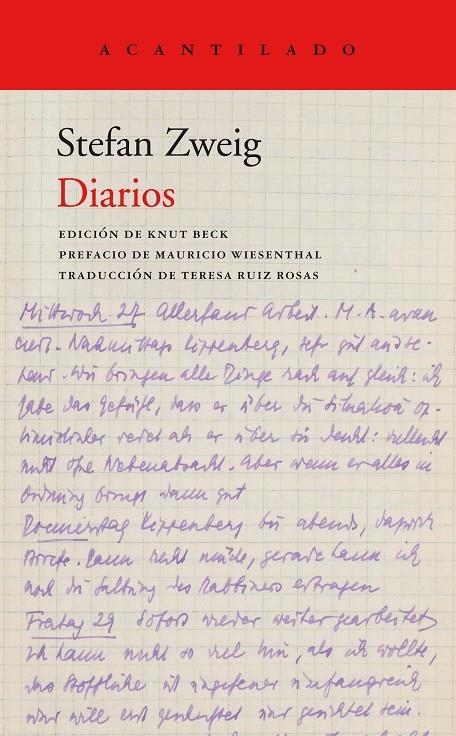 ACANTILADO
Stefan Zweig
Diarios
EDICIÓN DE KNUT BECK
PREFACIO DE MAURICIO WIESENTHAL
TRADUCCIÓN DE TERESA RUIZ ROSAS
Mittwoch 27 Allerhand Arbeit. M. A. avan
ciert. Nachmittags Kippenberg, sehr gut
Wir bringen alle Dinge nach auf gleich: ich
habe das Gefühl, dass er über die Situation op-
timistischer redet als er über sie denkt: vielleicht
nicht ohne Nebenabsicht. Aber wenn er alles in
Ordnung bringt dann gut
Donnerstag Kippenberg bis abends,
Briefe. kann nicht gerade kann ich
noch die des Rabbiners ertragen
Freitag 29 Sofort wieder weiter gearbeitet
Ich kann nicht so viel hin, als ich wollte,
das Stoffliche ist ungeheuer umfangreich
und will erst und gerichtet sein.